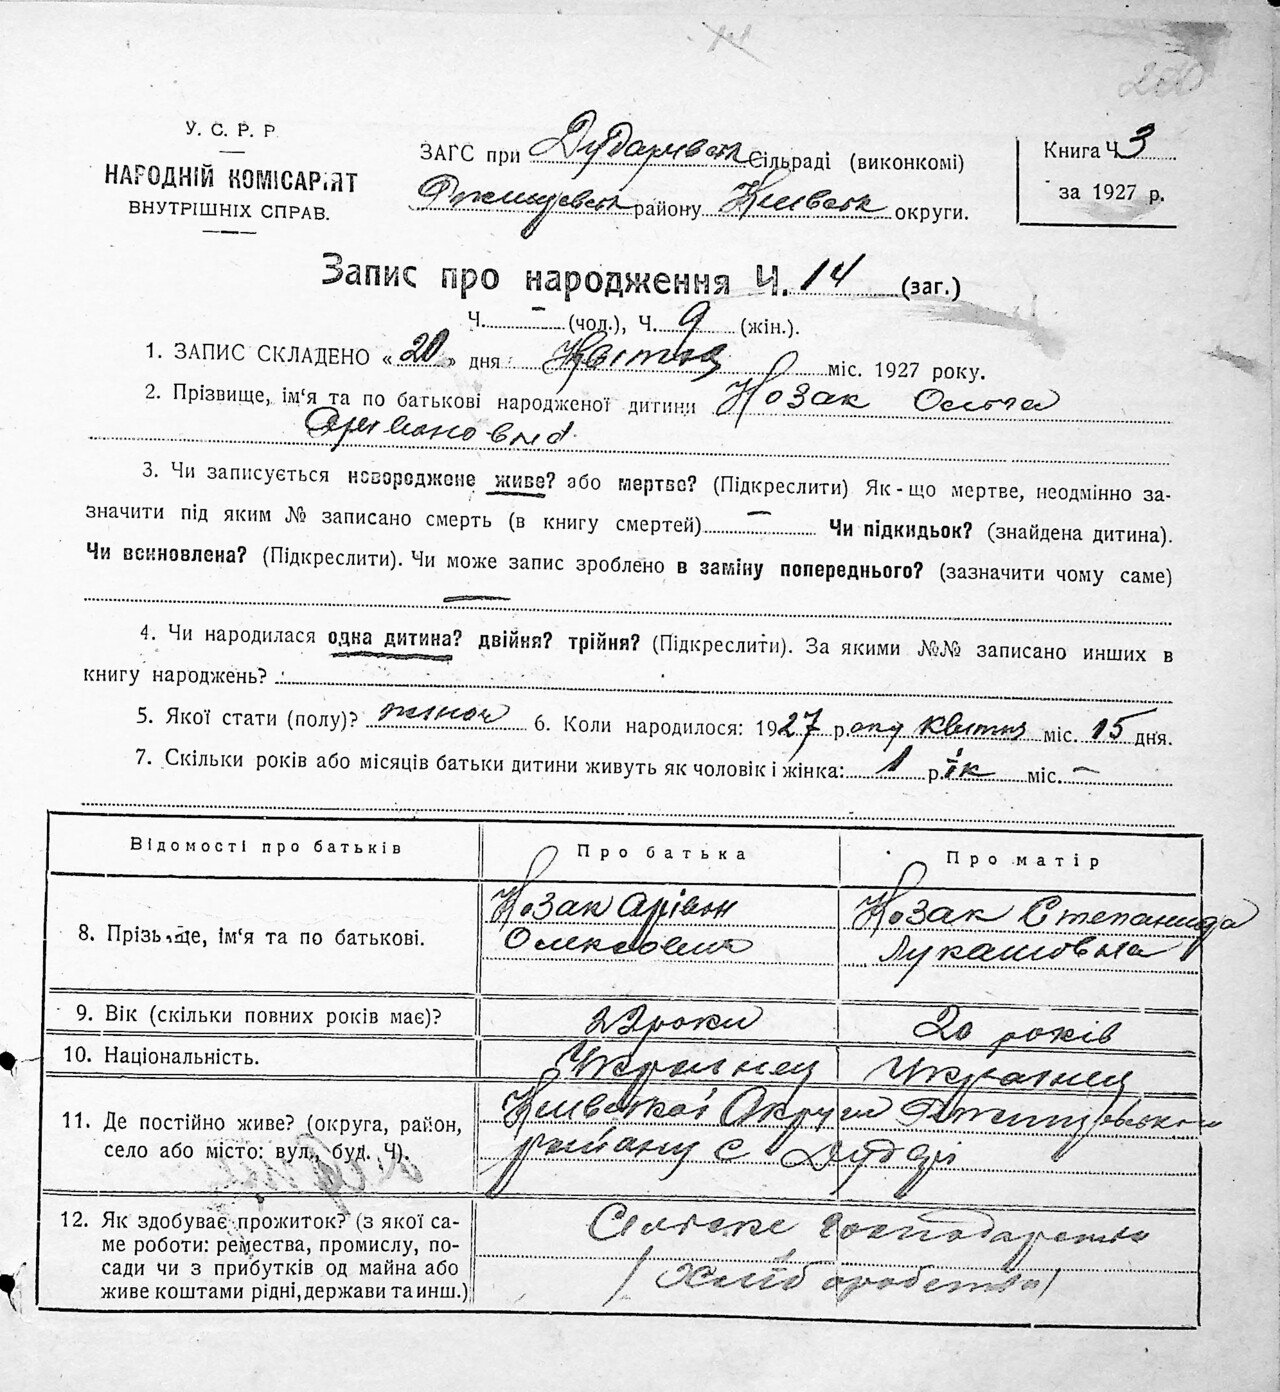 14
200
У. С. Р. Р.
НАРОДНІЙ КОМІСАРІЯТ
ВНУТРІШНІХ СПРАВ.
ЗАГС при Дударивськ Сільраді (виконкомі)
Ржищевськ району Київськ округи.
Книга Ч 3
за 1927 р.
Запис про народження Ч. 14 (заг.)
Ч. – (чол.), Ч. 9 (жін.).
1. ЗАПИС СКЛАДЕНО « 20 » дня Квітня міс. 1927 року.
2. Прізвище, ім‘я та по батькові народженої дитини Козак Ольга
Аривоновна
3. Чи записується новороджене живе? або мертве? (Підкреслити) Як-що мертве, неодмінно за-
значити під яким № записано смерть (в книгу смертей) – Чи підкидьок? (знайдена дитина).
Чи всиновлена? (Підкреслити). Чи може запис зроблено в заміну попереднього? (зазначити чому саме)
—
4. Чи народилася одна дитина? двійня? трійня? (Підкреслити). За якими №№ записано инших в
книгу народжень? —
5. Якої стати (полу)? жіноч 6. Коли народилося: 1927 року квітня міс. 15 дня.
7. Скільки років або місяців батьки дитини живуть як чоловік і жінка: 1 рік міс. –
Відомості про батьків
Про батька
Про матір
8. Прізьвище, ім'я та по батькові.
Козак Арівон
Олексієвич
Козак Степанида
Лукашовна
9. Вік (скільки повних років має)?
22 роки
20 років
10. Національність.
Українец
Українец
11. Де постійно живе? (округа, район,
село або місто: вул., буд. Ч).
Київської Округи Ржищовського
району с Дударі
12. Як здобуває прожиток? (з якої са-
ме роботи: ремества, промислу, по-
сади чи з прибутків од майна або
живе коштами рідні, держави та инш.)
Сільське господарство
/ Хліборобство /